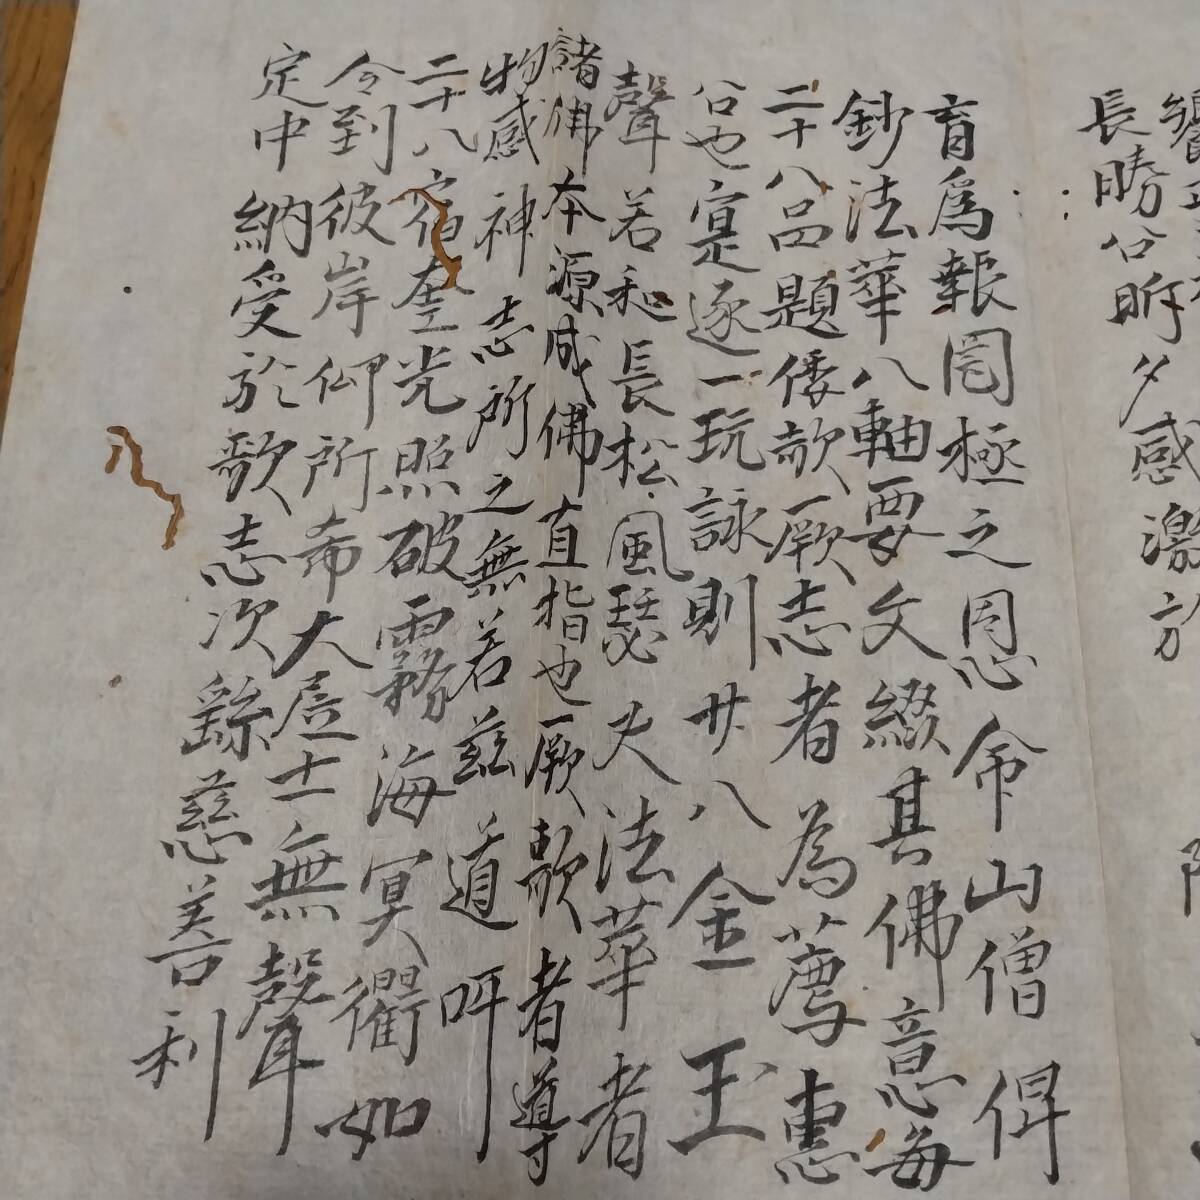 長勝公昕夕感激於
育爲報罔極之恩命山僧俾
鈔法華八軸要文綴其佛意每
二十八品題倭歌厥志者為薦惠
公也寔逐一玩詠則廿八金玉
聲若和長松風瑟又法華者
諸佛本源成佛直指也厥歌者導
物感神志所之無若茲道吁
二十八宿奎光照破霧海冥衢如
今到彼岸仰所希大居士無聲
定中納受於歌志次繇慈善利